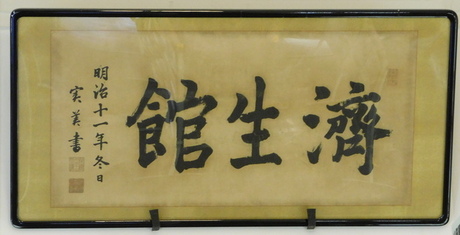 濟生館
明治十一年冬日
実美書